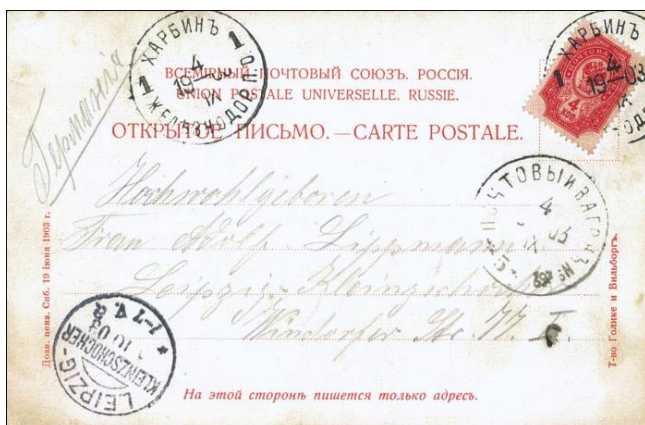 ХАРБИНЪ
1 4 1
19 03
IX
ЖЕЛѢЗНОДОР. П. О.
ХАРБИНЪ
1 4
19 03
IX
4 КОП
ВСЕМІРНЫЙ ПОЧТОВЫЙ СОЮЗЪ. РОССІЯ.
UNION POSTALE UNIVERSELLE. RUSSIE.
ОТКРЫТОЕ ПИСЬМО.—CARTE POSTALE.
Германія
ПОЧТОВЫЙ ВАГОНЪ №
4
IX 03
Hochwohlgeboren
Frau Adolf Lippmann
Leipzig-Kleinzschocher
Windorfer Str.
LEIPZIG-
KLEINZSCHOCHER
10 03
7-7 V.
Дозв. ценз. Спб. 19 іюня 1903 г.
Т-во Голике и Вильборгъ.
На этой сторонѣ пишется только адресъ.